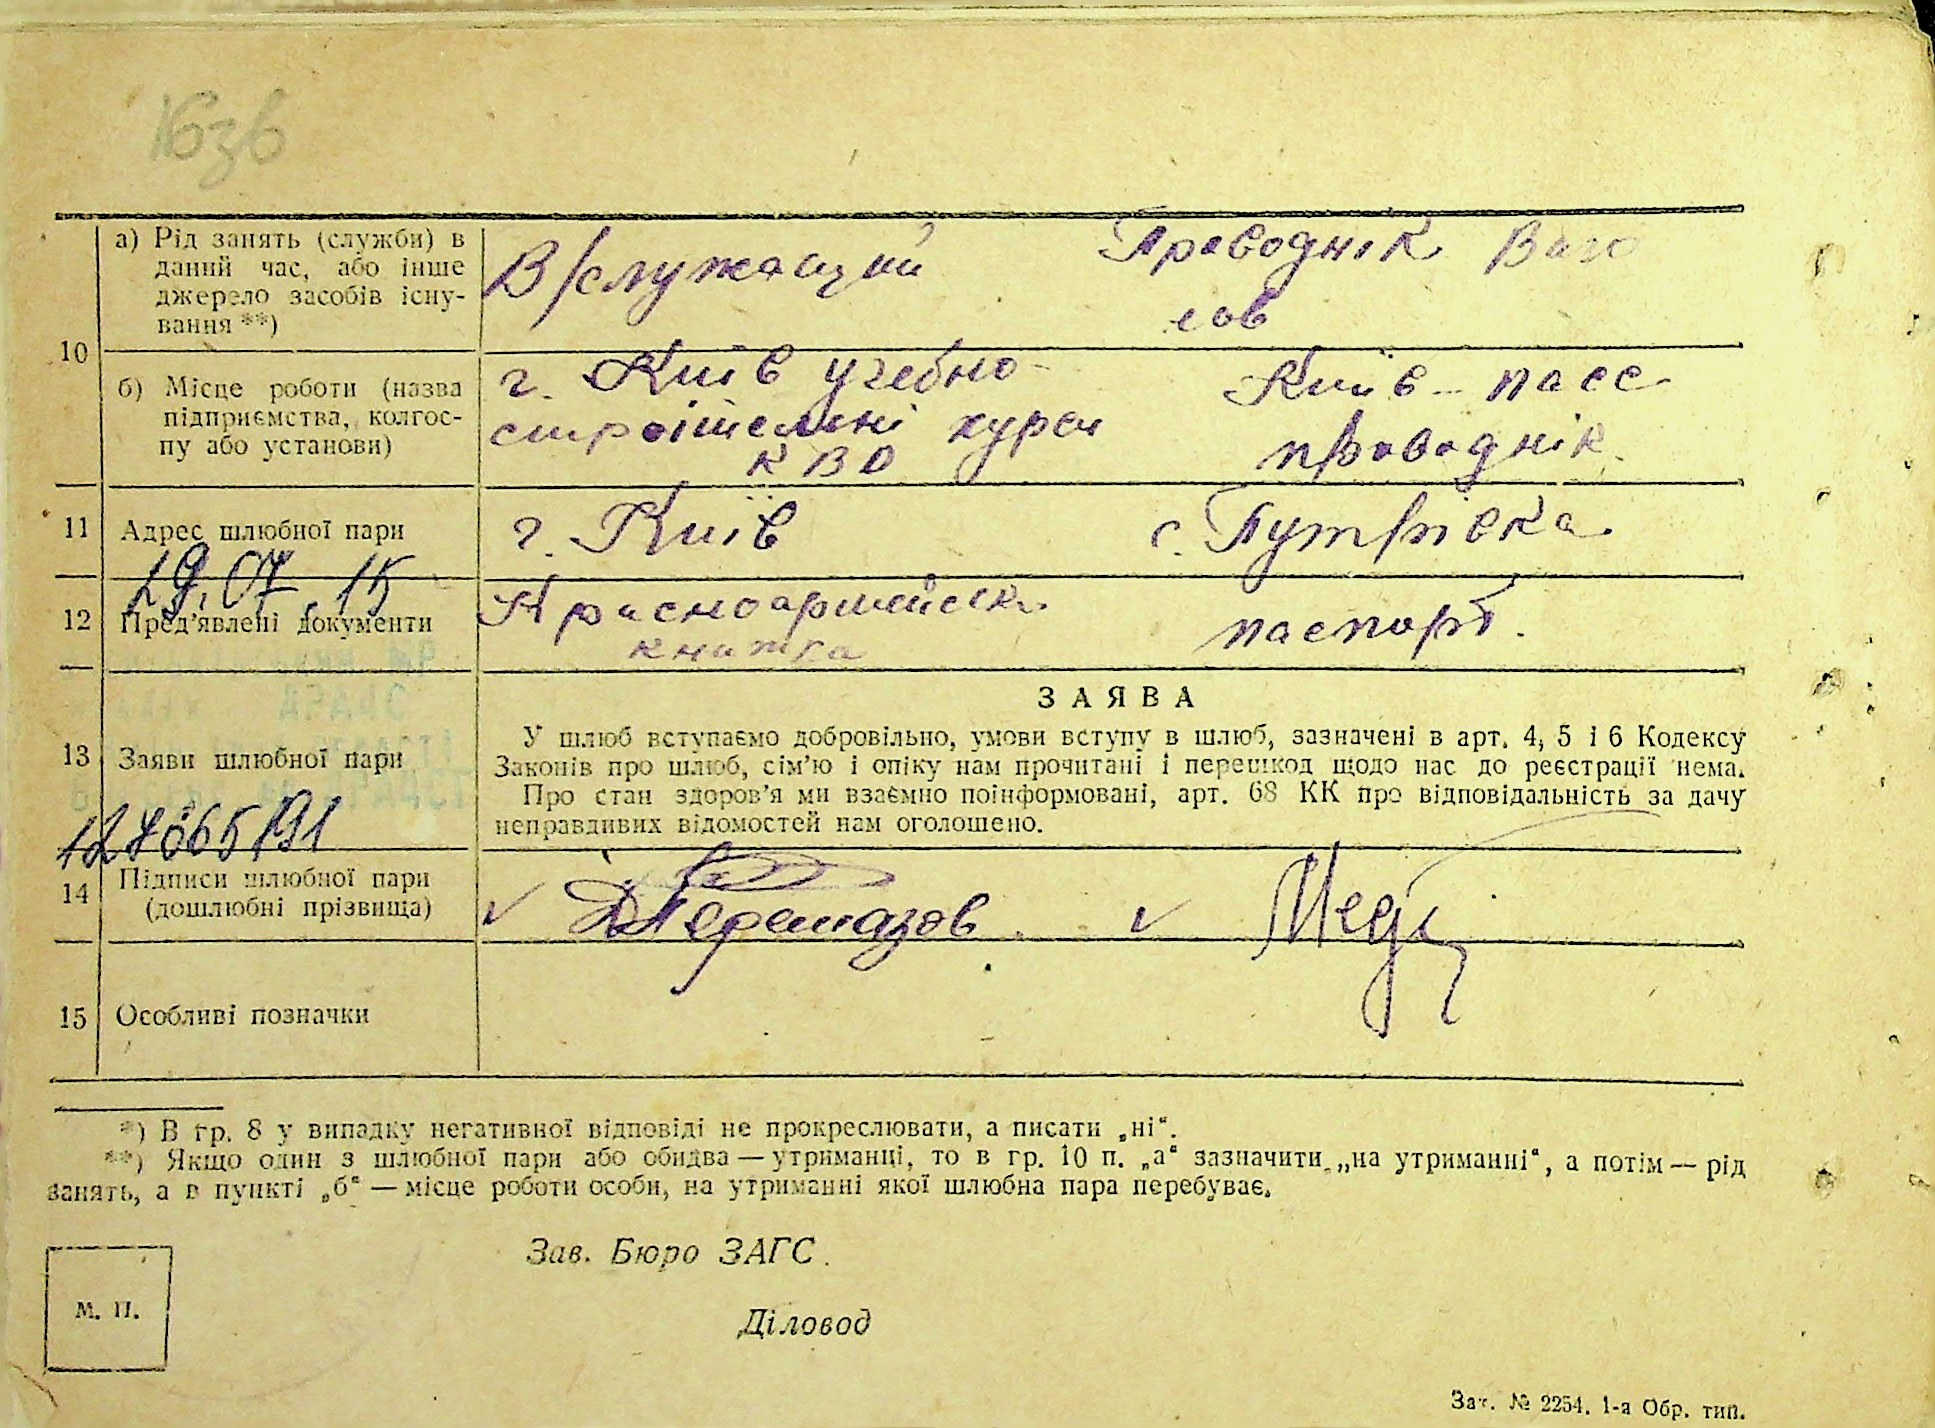 1636
а) Рід занять (служби) в
даний час, або інше
джерело засобів існу-
вання **)
В/служащий
Праводнік Ваго
сов
10
б) Місце роботи (назва
підприємства, колгос-
пу або установи)
г. Київ учебно-
строітельні курси
КВО
Київ - пасс
праваднік
11 Адрес шлюбної пари
г. Київ
с. Путрівка
29.07.15
12 Пред’явлені документи
Красноармейска
книжка
паспорт.
ЗАЯВА
13 Заяви шлюбної пари
У шлюб вступаємо добровільно, умови вступу в шлюб, зазначені в арт. 4, 5 і 6 Кодексу
Законів про шлюб, сім’ю і опіку нам прочитані і перешкод щодо нас до реєстрації нема.
Про стан здоров’я ми взаємно поінформовані, арт. 68 КК про відповідальність за дачу
неправдивих відомостей нам оголошено.
14 Підписи шлюбної пари
(дошлюбні прізвища)
15 Особливі позначки
*) В гр. 8 у випадку негативної відповіді не прокреслювати, а писати „ні“.
**) Якщо один з шлюбної пари або обидва — утриманці, то в гр. 10 п. „а“ зазначити „на утриманні“, а потім — рід
занять, а в пункті „б“ — місце роботи особи, на утриманні якої шлюбна пара перебуває.
Зав. Бюро ЗАГС
Діловод
М. П.
Зат. № 2254. 1-а Обр. тип.